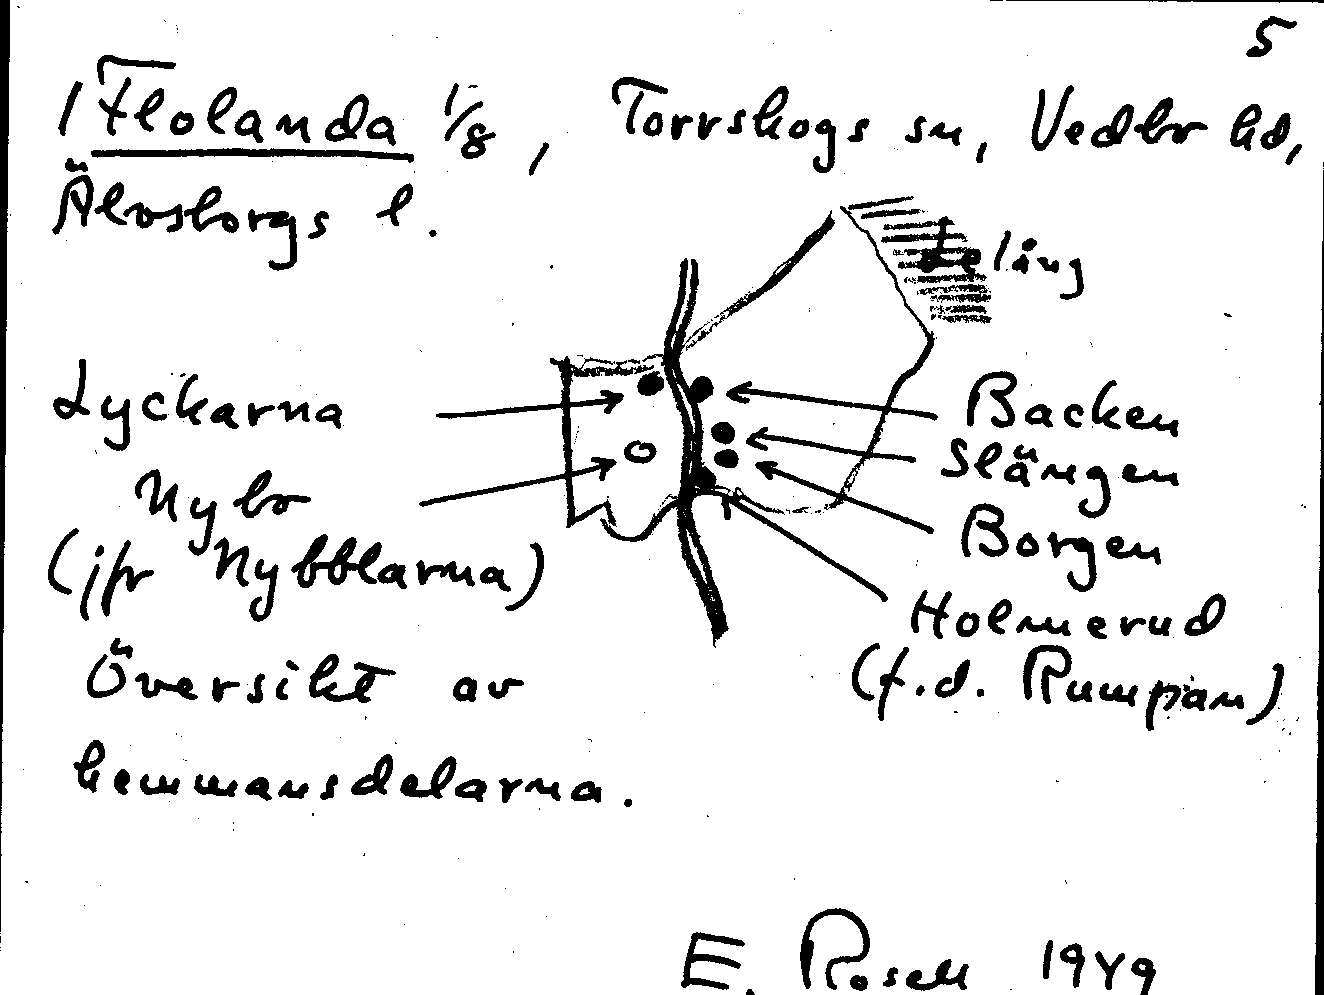 5
1 Flolanda 1/8, Torrskogs sn, Vedbo hd,
Älvsborgs l.
Leläng
Lyckarna
Backen
Slängen
Nybo
Borgen
(jfr Nybblarna)
Holmerud
(f.d. Rumpan)
Översikt av
hemmansdelarna.
E. Rosell 1949